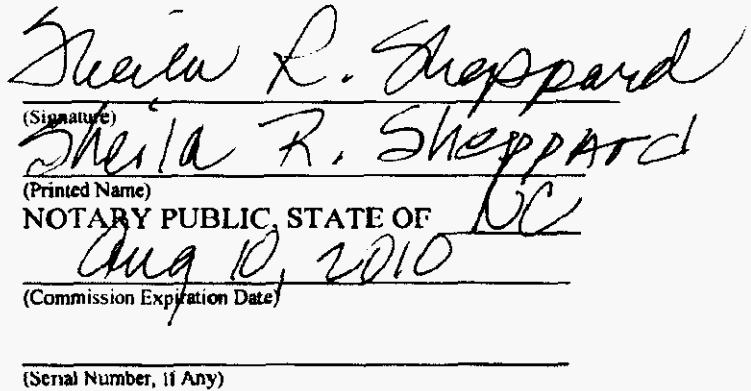 Sheila R. Sheppard
(Signature)
Sheila R. Sheppard
(Printed Name)
NOTARY PUBLIC, STATE OF NC
Aug 10, 2010
(Commission Expiration Date)
(Serial Number, if Any)